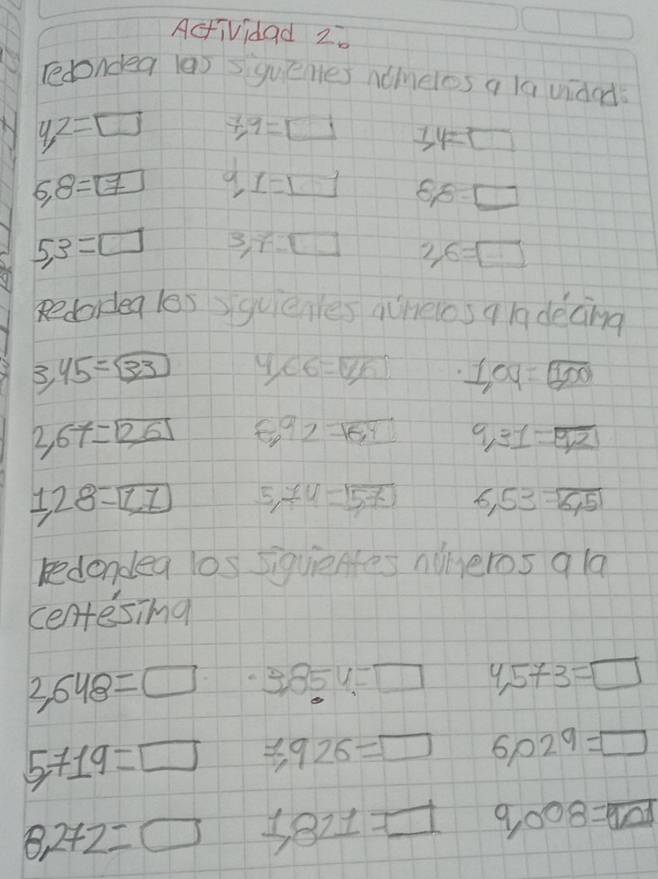 Actividad 2.
redondea las siguientes números a la unidad:
4,2=□ 7,9=□ 1,4=□
6,8=7 9,1=□ 8,5=□
5,3=□ 3,7=□ 2,6=□
Redondea los siguientes números a la décima
3,45=33 4,66= 1,04=1,00
2,67=2,6 6,92=6,9 9,31=9,2
1,28=1,1 5,74=5,7 6,53=6,5
redondea los siguientes números a la
centésima
2,648=□ 3,854=□ 4,573=□
5,719=□ 7,926=□ 6,029=□
8,272=□ 1,821=□ 9,008=